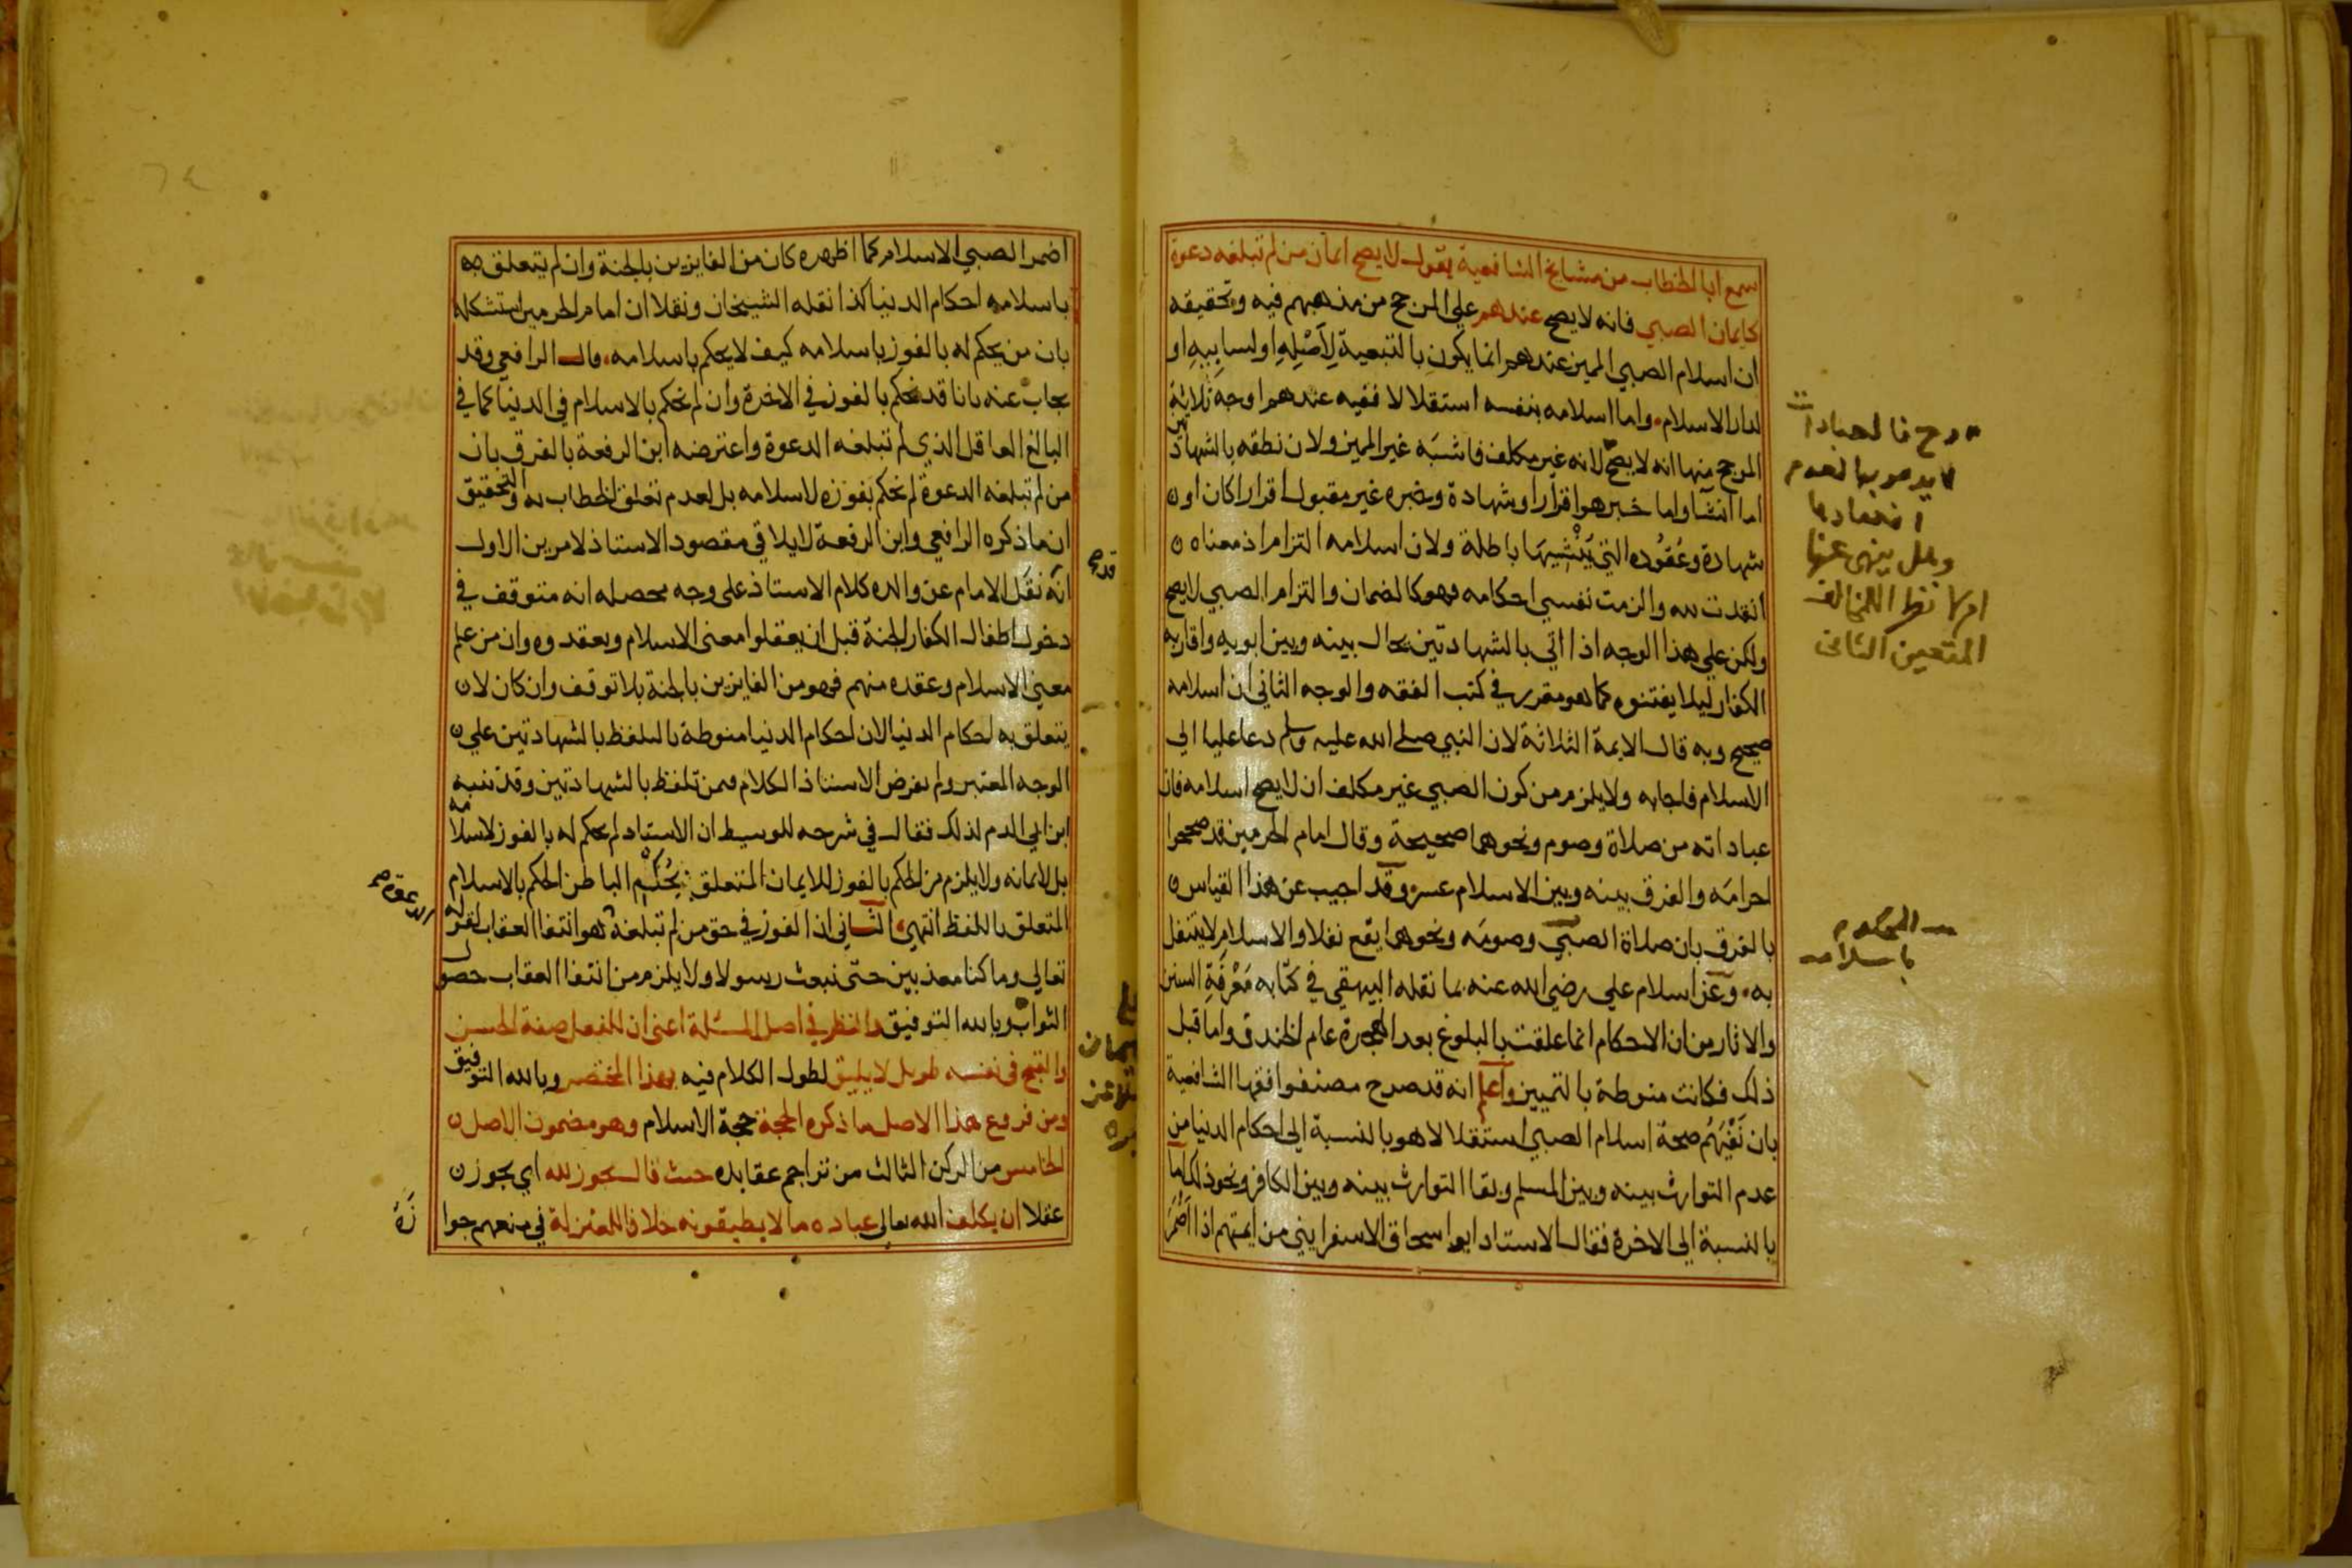 سمع ابا الخطاب من مشايخ الشافعية يقول لا يصح ايمان من لم تبلغه دعوة
كايمان الصبي فانه لا يصح عندهم علي المرجح من مذهبهم فيه وتحقيقه
ان اسلام الصبي المميز عندهم انما يكون بالتبعية لِاَصْلِهِ او لسابِيهِ او
لدار الاسلام، واما اسلامه بنفسه استقلالا ففيه عندهم اوجه ثلاثة
المرجح منها انه لا يصح لانه غير مكلف فاشبَه غير المميز ولان نطقه بالشهادتين
اما انشا واما خبر هو اقرار او شهادة وخبره غير مقبول اقرارا كان او
شهادة وعُقُوده التي يَنْشِيهَا باطلة ولان اسلامه التزام اذ معناه
انقدت لله والزمت نفسي احكامه فهو كالضمان والتزام الصبي لا يصح
ولكن علي هذا الوجه اذا اتي بالشهادتين يحال بينه وبين ابويه واقاربه
الكفار ليلا يفتنوه كما هو مقرر في كتب الفقه والوجه الثاني ان اسلامه
صحيح وبه قال الايمة الثلاثة لان النبي صلي الله عليه وسلم دعا عليا الي
الاسلام فاجابه ولا يلزم من كون الصبي غير مكلف ان لا يصح اسلامه فان
عباداته من صلاة وصوم ونحوهما صحيحة وقال امام الحرمين قد صححوا
احرامَه والفرق بينه وبين الاسلام عسر وقد اجيب عن هذا القياس
بالفرق بان صلاة الصبي وصومَه ونحوهما يقع نفلا والاسلام لا يتنفل
به، وعن اسلام علي رضي الله عنه بما نقله البيهقي في كتابه مَعْرِفَةِ السنن
والاثار من ان الاحكام انما علقت بالبلوغ بعد الهجرة عام الخندق واما قبل
ذلك فكانت منوطة بالتمييز واعلم انه قد صرح مصنفوا فقها الشافعية
بان نَفْيَهُم صحة اسلام الصبي استقلالا هو بالنسبة الي احكام الدنيا من
عدم التوارث بينه وبين المسلم وبقا التوارث بينه وبين الكافر ونحو ذلك اما
بالنسبة الي الاخرة فقال الاستاد ابو اسحاق الاسفرايني من ايمتهم اذا اَضْمَرَ
وح فالعبادات
انعقادها
المحكوم
باسلامه
اضمر الصبي الاسلام كما اظهره كان من الفايزين بالجنة وان لم يتعلق
باسلامه احكام الدنيا كذا نقله الشيخان ونقلا ان امام الحرمين استشكله
بان من يحكم له بالفوز باسلامه كيف لا يحكم باسلامه، قال الرافعي وقد
يجاب عنه بانا قد نحكم بالفوز في الاخرة وان لم نحكم بالاسلام في الدنيا كما في
البالغ العاقل الذي لم تبلغه الدعوة واعترضه ابن الرفعة بالفرق بان
من لم تبلغه الدعوة لم نحكم بفوزه لاسلامه بل لعدم تعلق الخطاب به والتحقيق
ان ما ذكره الرافعي وابن الرفعة لا يلاقي مقصود الاستاذ لامرين الاول
انه نقَل الامام عن والده كلام الاستاذ علي وجه محصله انه متوقف في
دخول اطفال الكفار الجنة قبل ان يعقلوا معني الاسلام ويعقدوه وان من علم
معني الاسلام وعقده منهم فهو من الفايزين بالجنة بلا توقف وان كان لا
يتعلق به احكام الدنيا لان احكام الدنيا منوطة بالتلفظ بالشهادتين علي
الوجه المعتبر ولم يفرض الاستاذ الكلام فيمن تلفظ بالشهادتين وقد تنبه
ابن ابي الدم لذلك فقال في شرحه للوسيط ان الاستاد لم يحكم له بالفوز لاسلامه
بل لايمانه ولا يلزم من الحكم بالفوز للايمان المتعلق بِحُكْمِ الباطن الحكم بالاسلام
المتعلق باللفظ انتهي، الثاني اذ الفوز في حق من لم تبلغه هو انتفا العقاب لقوله
تعالي وما كنا معذبين حتي نبعث رسولا ولا يلزم من انتفا العقاب حصول
الثواب وبالله التوفيق والنظر في اصل المسئلة اعني ان للفعل صفة الحسن
والقبح في نفسه طويل لا يليق لطول الكلام فيه بهذا المختصر وبالله التوفيق
ومن فروع هذا الاصل ما ذكره الحجة حجة الاسلام وهو مضمون الاصل
الخامس من الركن الثالث من تراجم عقايده حيث قال يجوز لله اي يجوز
عقلا ان يكلف الله تعالي عباده ما لا يطيقونه خلافا للمعتزلة في منعهم جوا
الدعوة صح
زَهُ